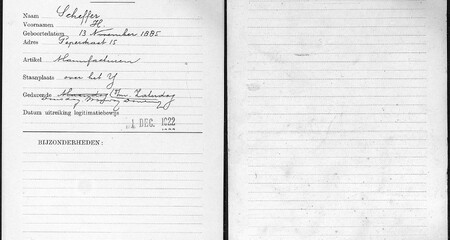 Naam Scheffer
Voornamen H.
Geboortedatum 13 November 1885
Adres Peperstraat 15
Artikel Manufacturen
Staanplaats over het Y
Gedurende Maandag t/m Zaturdag
Datum uitreiking legitimatiebewijs
1 DEC. 1922
BIJZONDERHEDEN: